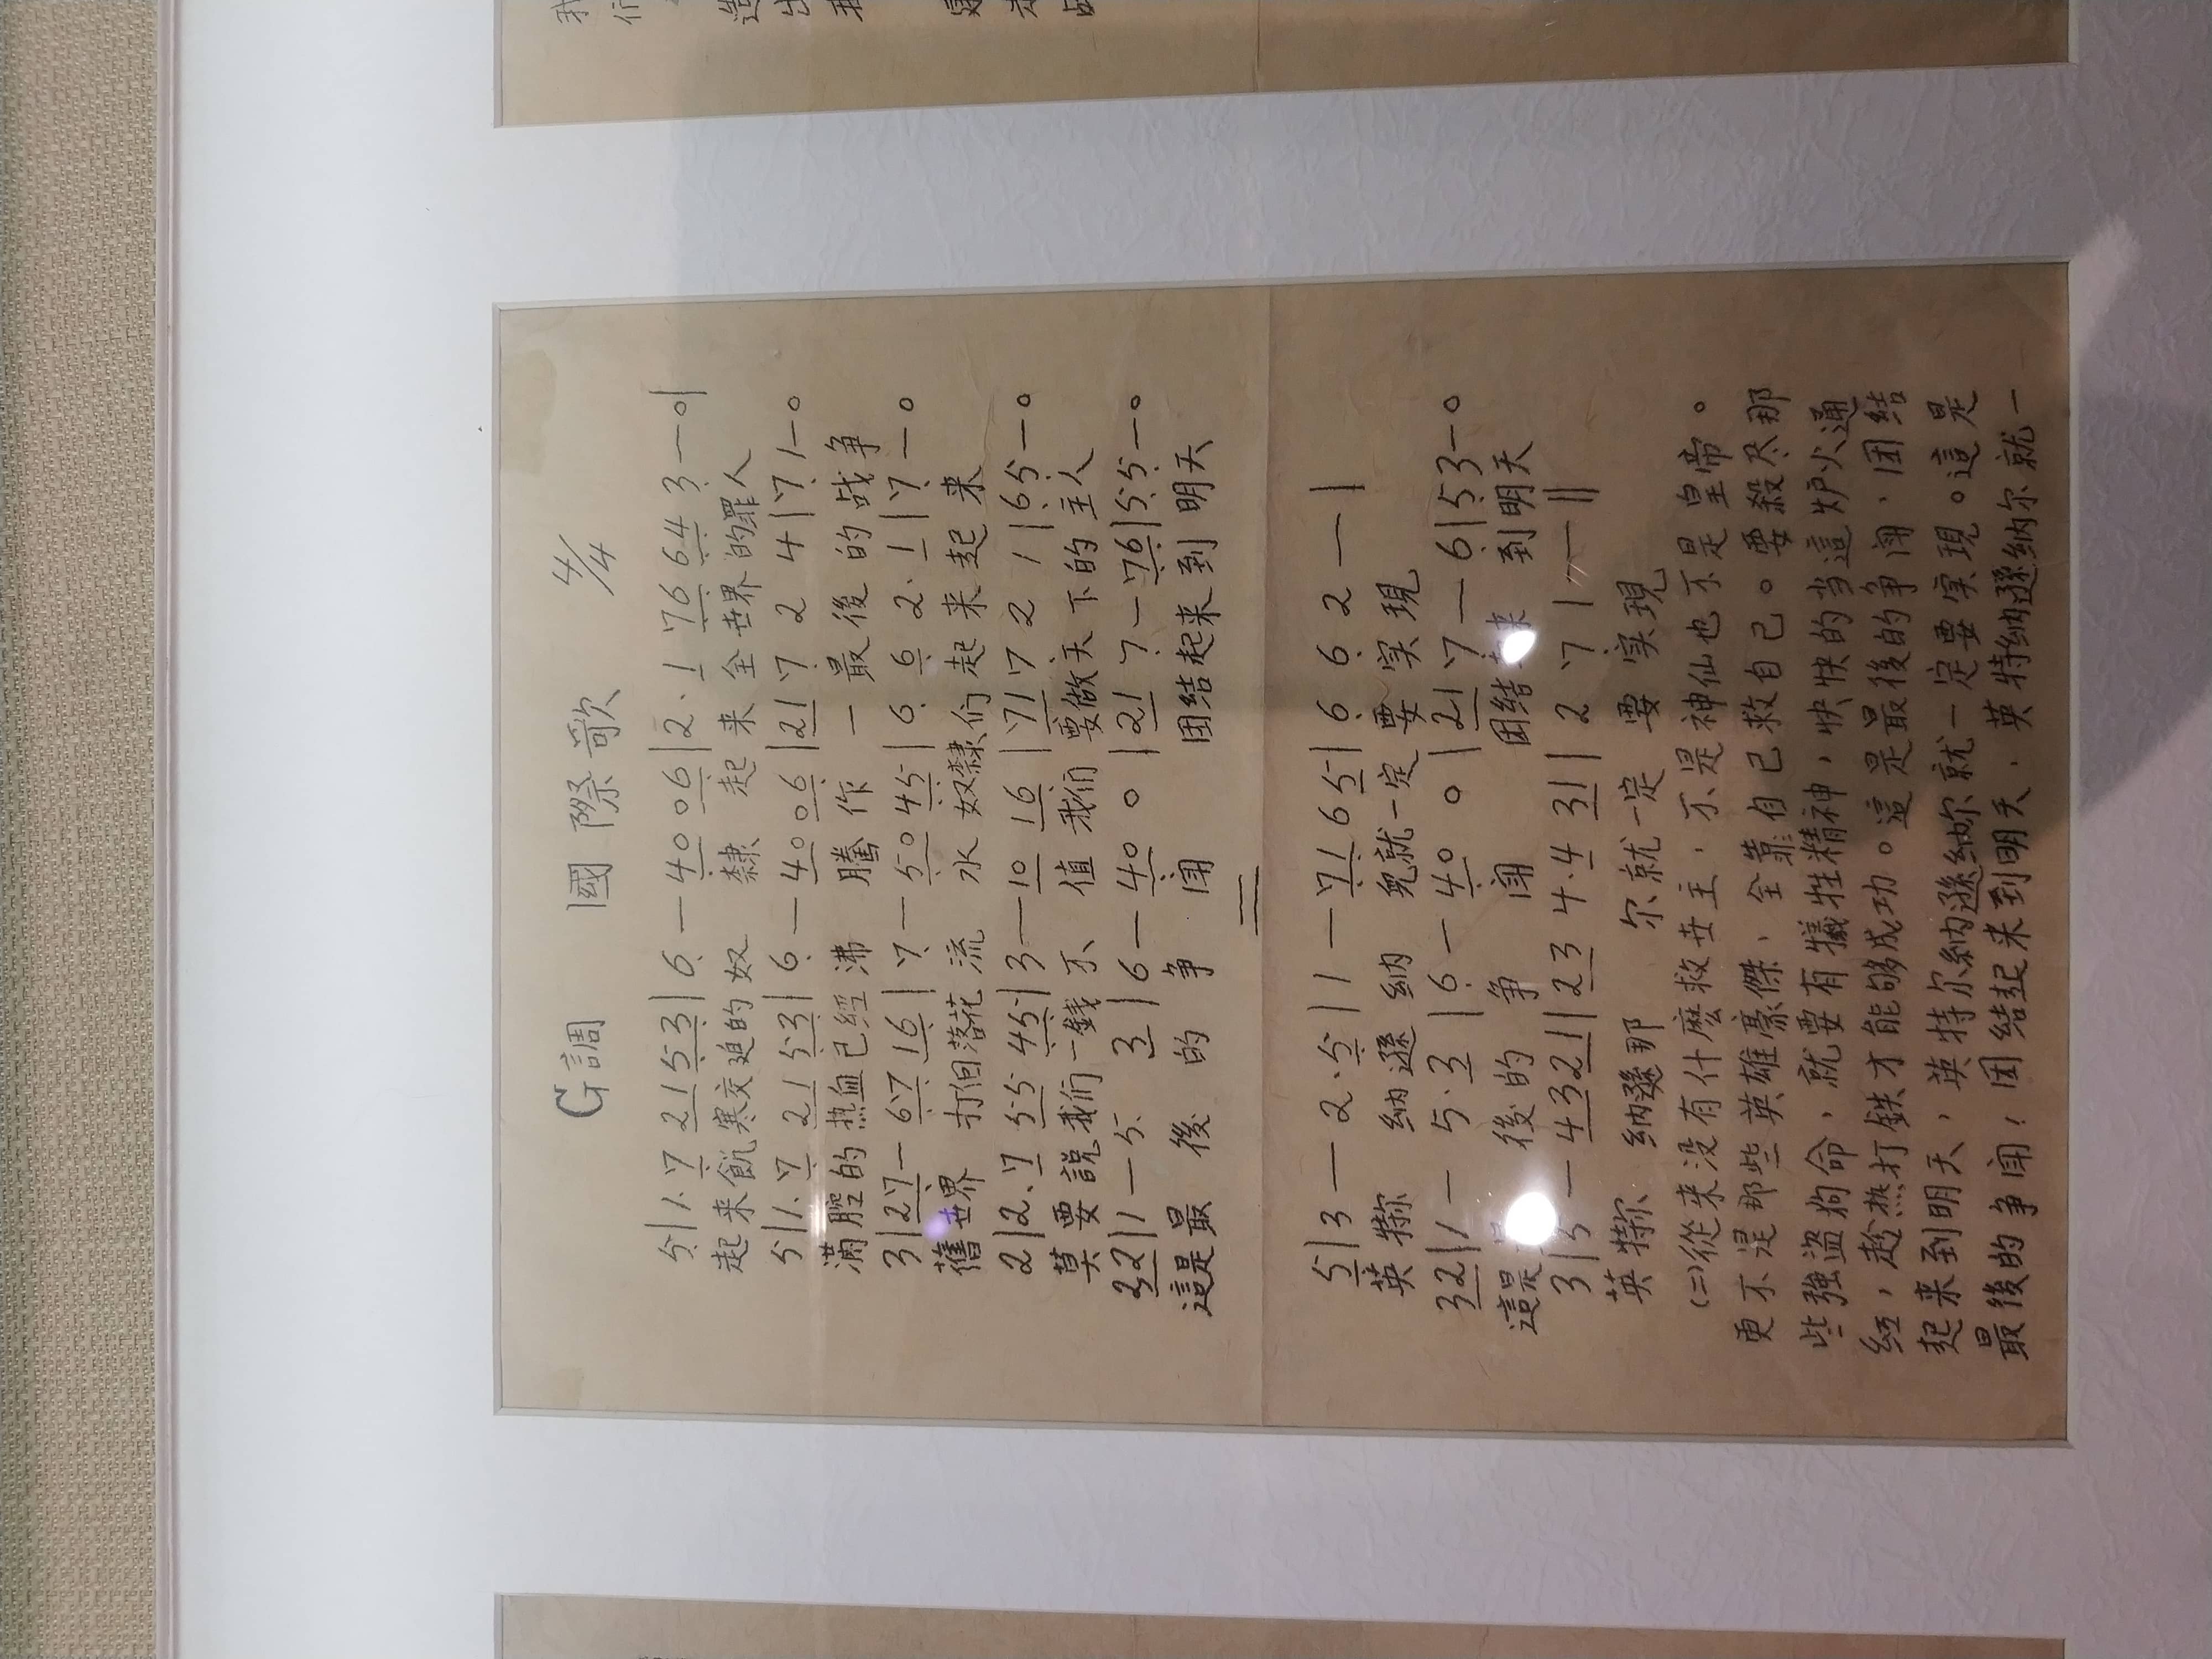 G調 國際歌 4/4
5|1.7 2153|6—40 06|2.1 76 64 3—0|
起来飢寒交迫的奴隸 起来全世界的罪人
5|1.7 21 53|6—40 06|21 7 2 4|7 1—0
满腔的热血已經沸騰 作一最後的战争
3|27— 67 16|7—50 45|6 6 2.1|7—0
舊世界 打個落花流水 奴隸们起来起来
2|2.7 55 45|3—10 16|71 7 2 1|65—0
莫要説我们一錢不值 我们要做天下的主人
32|1—5. 3|6—40 0|21 7—76|55—0
這是最後的争闹 团结起来到明天
5|3—2.5|1—71 65|6 6 2—|
英特尔納遜納 就一定要实現
32|1—5.3|6—40 0|217—6|53—0
這是 後的争闹 团结 来到明天
3|5—4321|23 4.4 31|2 7 1—‖
英特尔納遜那 尔就一定要实現
(二)從来没有什麽救世主,不是神仙也不是皇帝。
更不是那些英雄豪傑,全靠自己救自己。要殺尽那
些強盗狗命,就要有犧牲精神,快快的当這炉火通
紅,趁热打鉄才能够成功。這是最後的争闹,团结
起来到明天,英特尔納遜納尔就一定要实現。這是
最後的争闹,团结起来到明天,英特納遜納尔就一